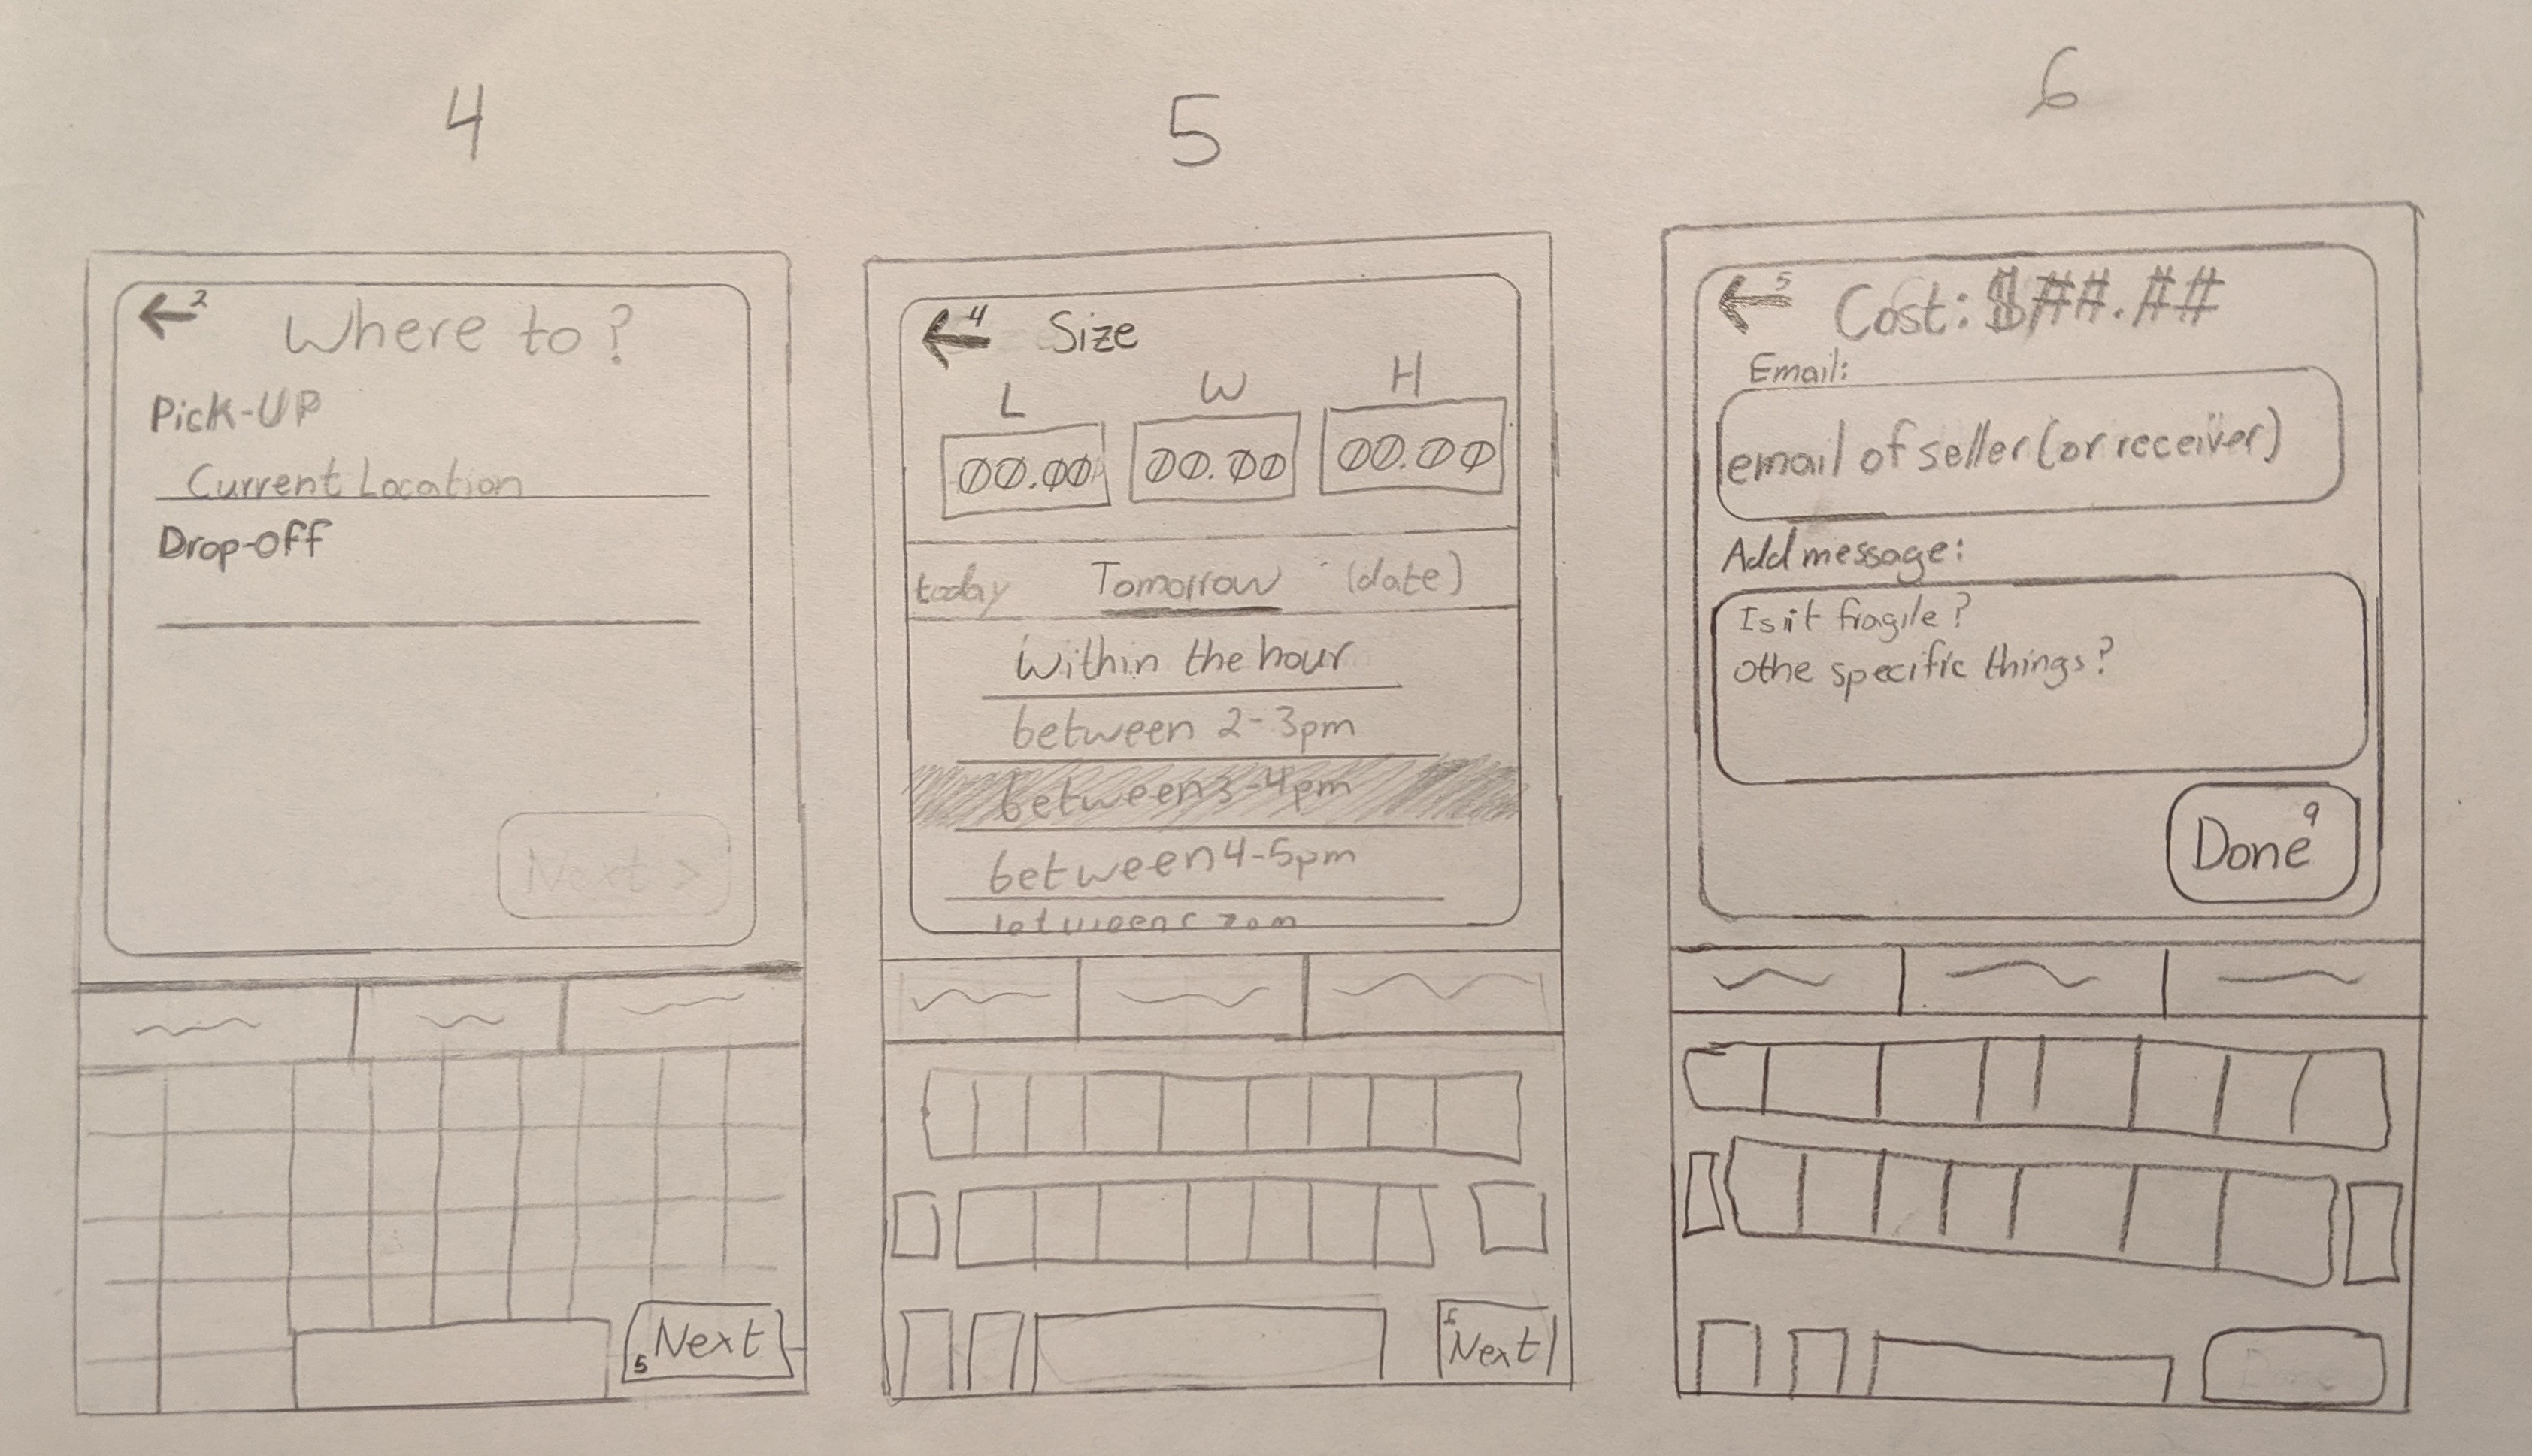 4
2
Where to?
Pick-UP
Current Location
Drop-off
Next >
5 Next
5
4
Size
L W H
00.00 00.00 00.00
today Tomorrow (date)
Within the hour
between 2-3pm
between 3-4pm
between 4-5pm
Next
6
5
Cost: $##.##
Email:
email of seller (or receiver)
Add message:
Is it fragile?
othe specific things?
Done 9
Done